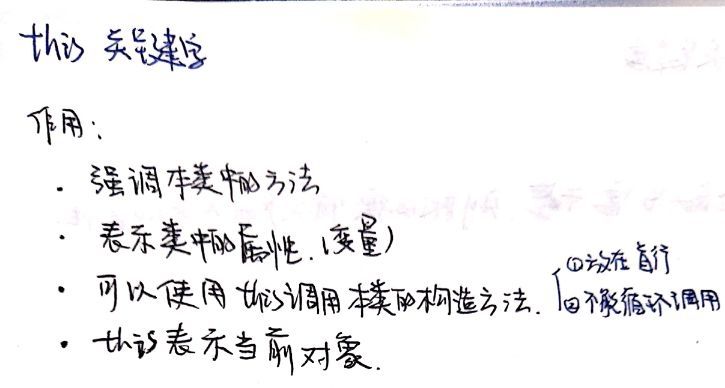 this 关键字
作用:
· 强调本类中的方法
· 表示类中的属性.(变量)
· 可以使用this调用本类的构造方法. ①放在首行
②不能循环调用
· this表示当前对象.